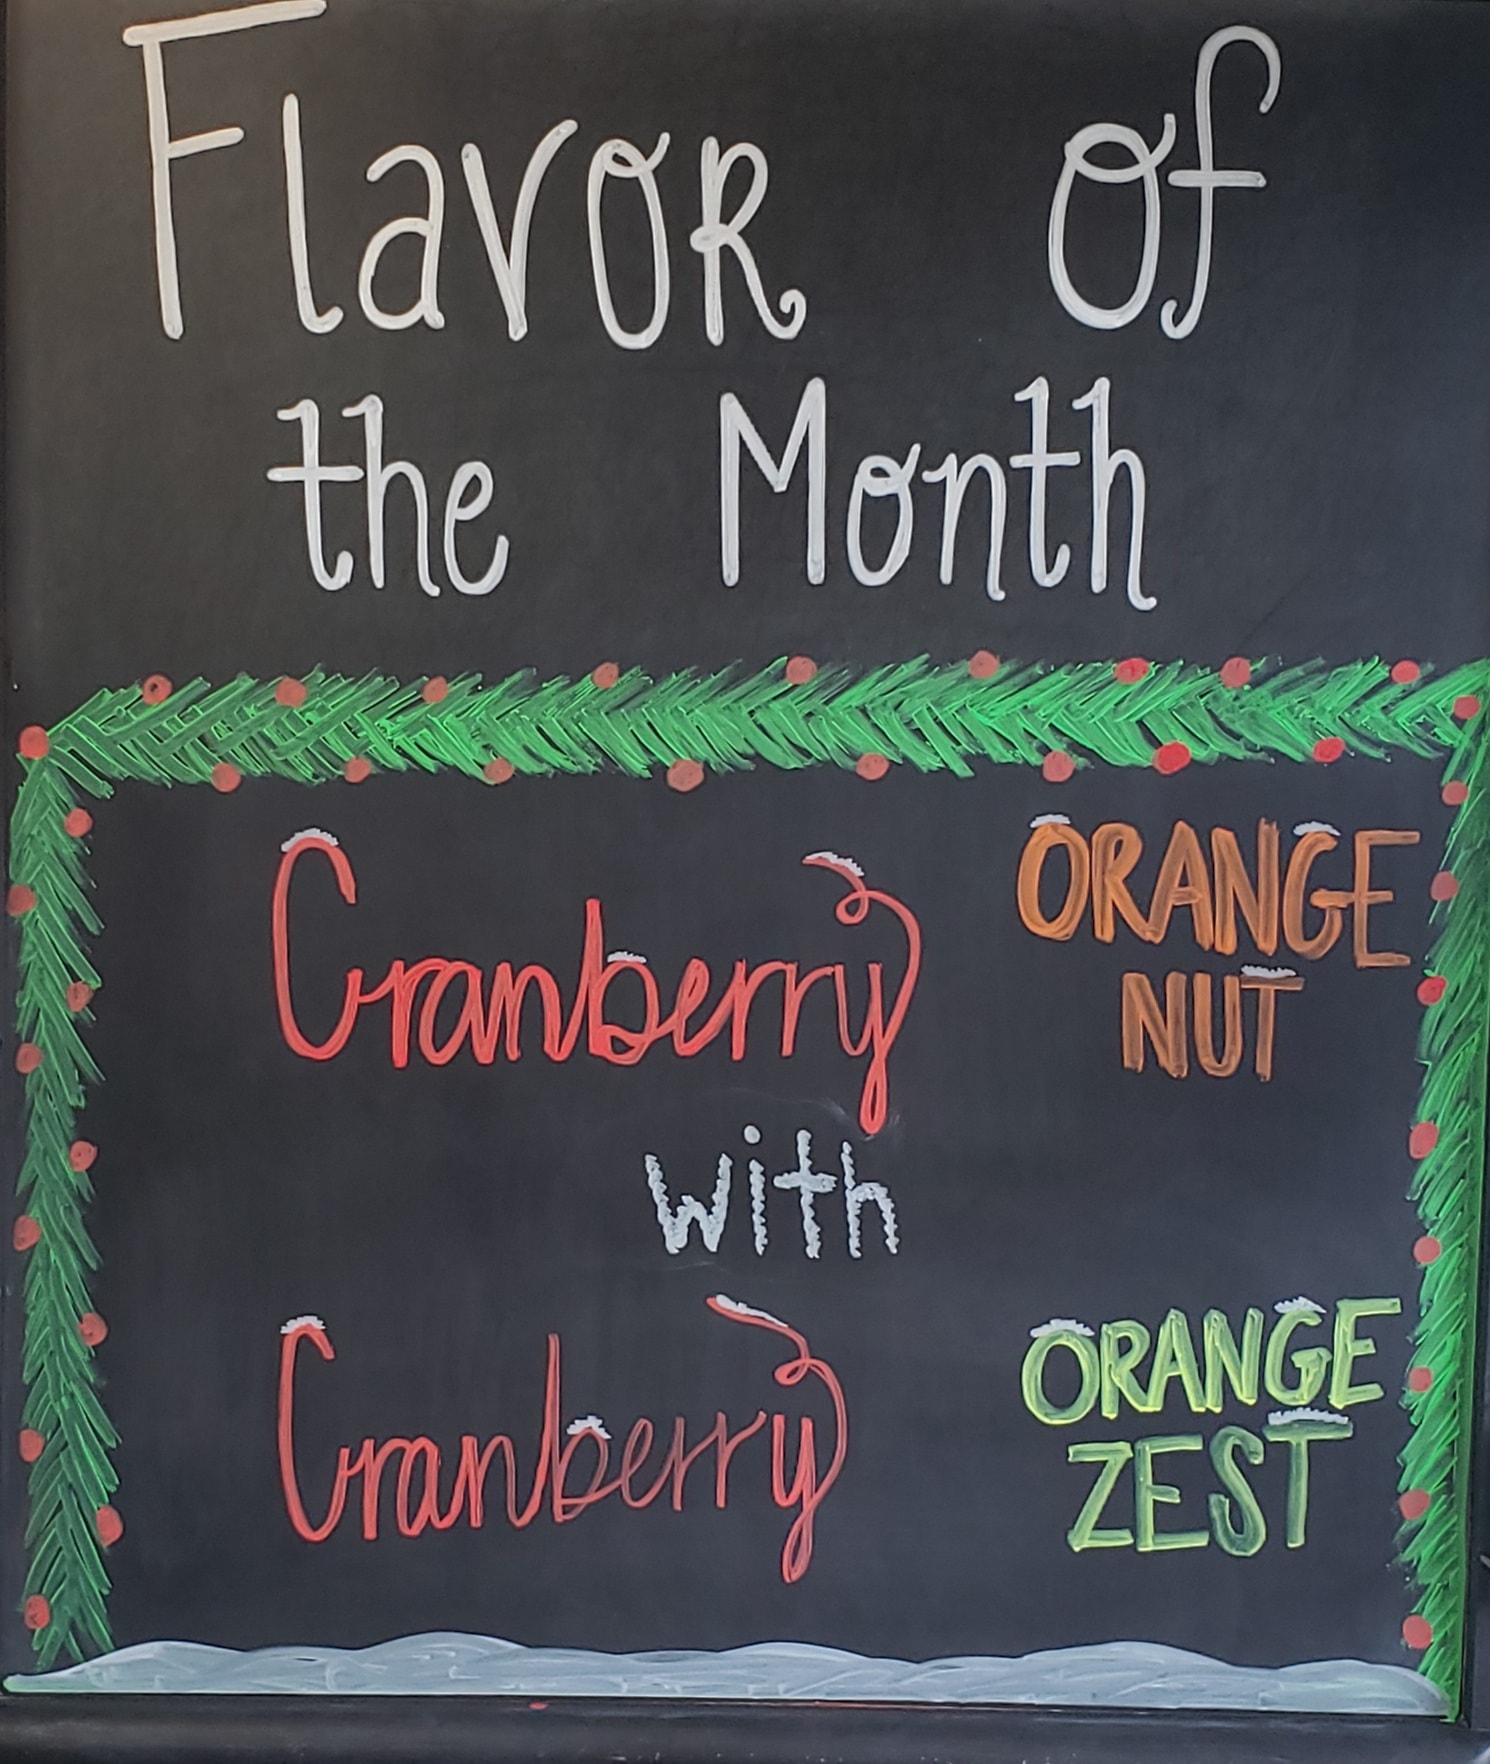 Flavor of
the Month
Cranberry ORANGE
NUT
with
Cranberry ORANGE
ZEST